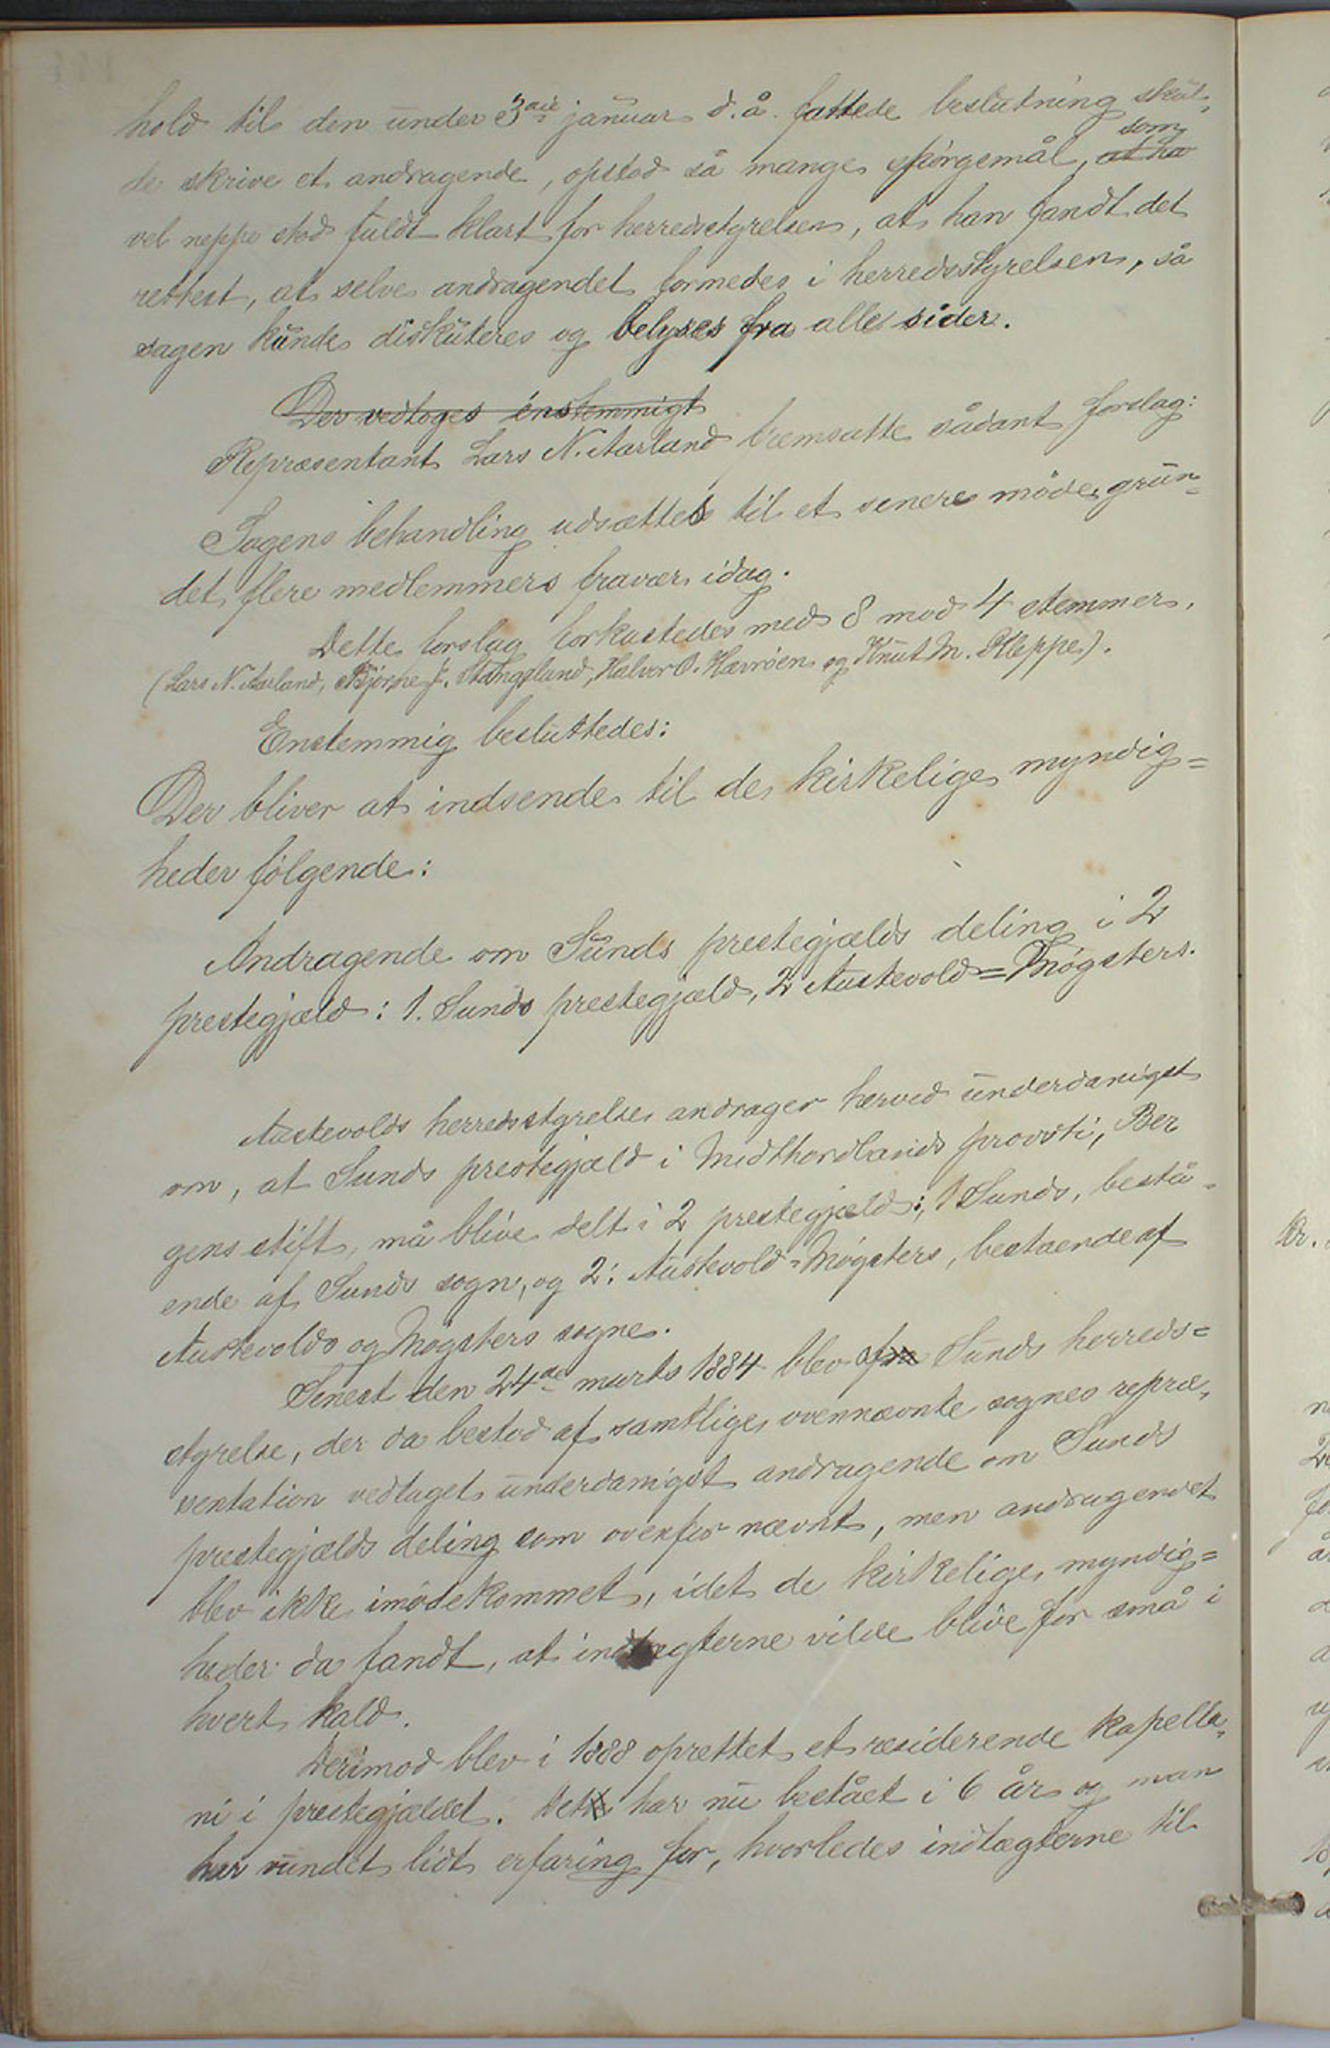 hold til den under 3die januar d.å. fattede beslutning skul-
de skrive et andragende, opstod så mange spörgsmål, som
vel neppe stod fuldt klart for herredsstyrelsen, at han fandt det
rettest, at selve andragendet formedes i herredsstyrelsen, så
sagen kunde diskuteres og belyses fra alle sider.
Der vedtoges énstemmigt
Repræsentant Lars N. Aarland fremsatte sådant forslag:
Sagens behandling udsættes til et senere möde, grun-
det flere medlemmers fravær idag.
Dette forslag forkastedes med 8 mod 4 stemmer.
(Lars N. Aarland, Bjørne J. Stangeland, Halvor O. Hevröen og Knut M. Kleppe).
Enstemmig besluttedes:
Der bliver at indsende til de kirkelige myndig=
heder følgende:
Andragende om Sunds prestegjælds deling i 2
prestegjæld: 1. Sunds prestegjæld, 2 Austevold=Møgsters.
Austevolds herredsstyrelse andrager herved underdanigst
om, at Sunds prestegjæld i Midthordlands provsti, Ber
gens stift, må blive delt i 2 prestegjæld:, 1 Sunds, bestå-
ende af Sunds sogn, og 2: Austevold=Møgsters, bestaende af
Austevolds og Møgsters sogne.
Senest den 24de marts 1884 blev af Sunds herreds=
styrelse, der da bestod af samtlige ovennævnte sognes repræ-
sentation vedtaget underdanigst andragende om Sunds
prestegjælds deling som ovenfor nævnt, men andragendet
blev ikke imödekommet, idet de kirkelige myndig=
heder da fandt, at indtægterne vilde blive for små i
hvert kald.
Derimod blev i 1888 oprettet et residerende kapella-
ni i prestegjældet. Det har nu bestået i 6 år og man
har vundet lidt erfaring for, hvorledes indtægterne til